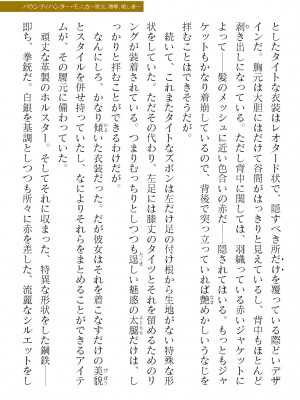 バウンティハンター・モニカ～敗北、陵辱、晒し者～
としたタイトな衣装はレオタード状で、隠すべき所だけを覆っている際どいデザ
インだ。胸元は大胆にはだけて谷間がはっきりと見えているし、背中もほとんど
剥き出しになっている。ただし背中に関しては、羽織っている赤いジャケットに
よって――髪のメッシュに近い色合いの赤だ――隠されてはいる。もっともジャ
ケットもかなり着崩しているので、背後で突っ立っていれば艶めかしいうなじを
拝むことはできそうだが。
　続いて、これまたタイトなズボンは左だけ足の付け根から生地がない特殊な形
状をしていた。ただその代わり、左足には膝丈のタイツとそれを留めるためのリ
ングが装着されている。つまりむっちりとしつつも逞しい魅惑の太腿だけは、し
っかりと拝むことができるわけだが。
　なんにしろ、かなり傾いた衣装だった。だが彼女はそれを着こなすだけの美貌
とスタイルを併せ持っていたし、なによりそれらをまとめることができるアイテ
ムが、その腰元に備わっていた。
　頑丈な革製のホルスター。そしてそれに収まった、特異な形状をした鋼鉄――
即ち、拳銃だ。白銀を基調としつつも所々に赤を差した、流麗なシルエットをし